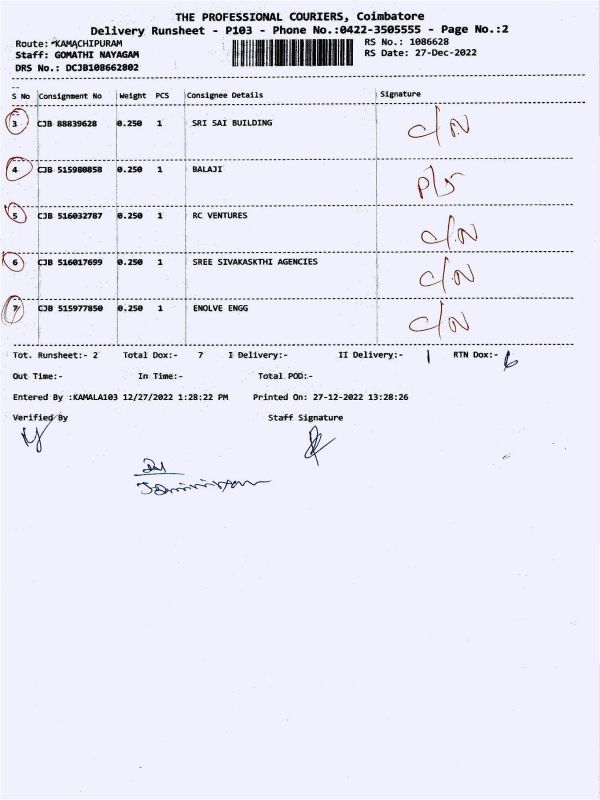 THE PROFESSIONAL COURIERS, Coimbatore
Delivery Runsheet - P103 - Phone No.:0422-3505555 - Page No.:2
Route: KAMACHIPURAM RS No.: 1086628
Staff: GOMATHI NAYAGAM RS Date: 27-Dec-2022
DRS No.: DCJB108662802
S No Consignment No Weight PCS Consignee Details Signature
3 CJB 88839628 0.250 1 SRI SAI BUILDING C/N
4 CJB 515980858 0.250 1 BALAJI P/5
5 CJB 516032787 0.250 1 RC VENTURES C/N
6 CJB 516017699 0.250 1 SREE SIVAKASKTHI AGENCIES C/N
7 CJB 515977850 0.250 1 ENOLVE ENGG C/N
Tot. Runsheet:- 2 Total Dox:- 7 I Delivery:- II Delivery:- 1 RTN Dox:- 6
Out Time:- In Time:- Total POD:-
Entered By :KAMALA103 12/27/2022 1:28:22 PM Printed On: 27-12-2022 13:28:26
Verified By Staff Signature